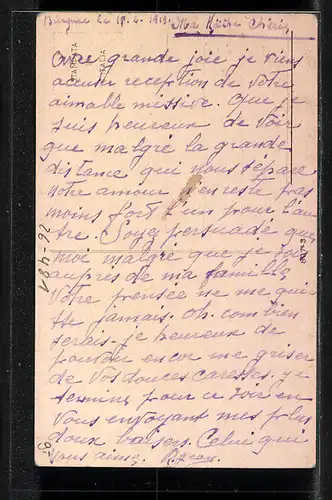 le 18-4-1919. Ma Reine Chérie
Avec grande joie je viens
accuser reception de votre
aimable missive. Que je
suis heureux de voir
que malgré la grande
distance qui nous sépare
notre amour n'en reste pas
moins fort l'un pour l'au
tre. Soyez persuadé que
moi malgré que je sois
auprès de ma famille
Votre pensée ne me qui
tte jamais. Oh combien
serais-je heureux de
pouvoir encore me griser
de vos douces caresses. Je
termine pour ce soir en
vous envoyant mes plus
doux baisers. Celui qui
vous aime.